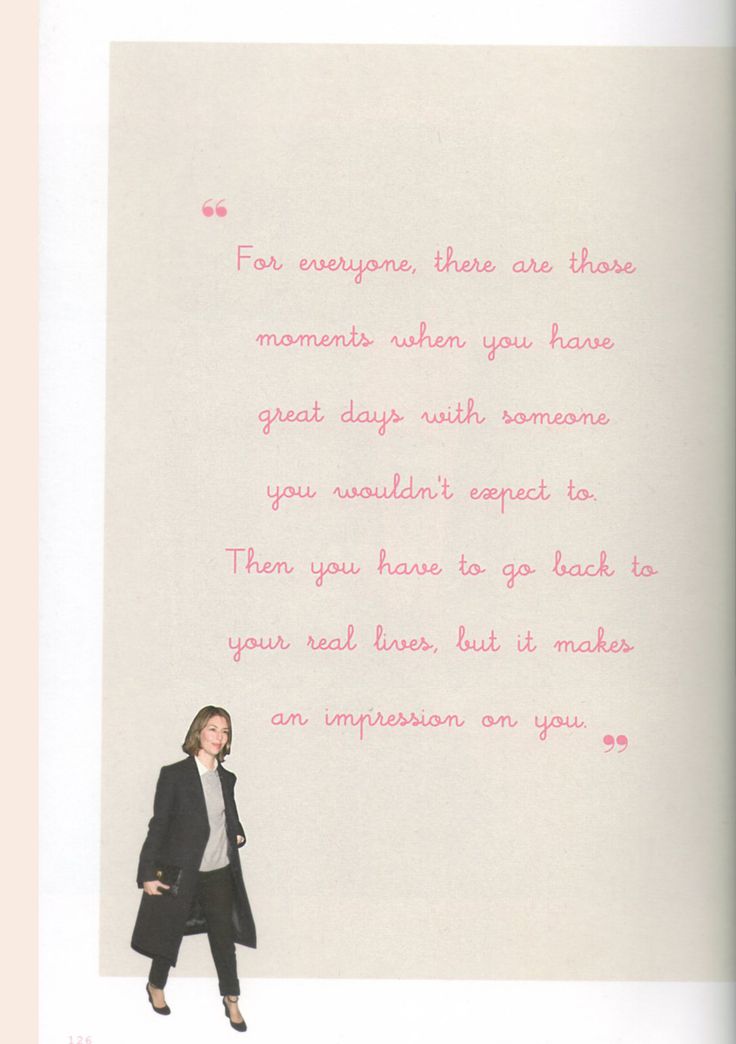 “
For everyone, there are those
moments when you have
great days with someone
you wouldn't expect to.
Then you have to go back to
your real lives, but it makes
an impression on you.
”
126